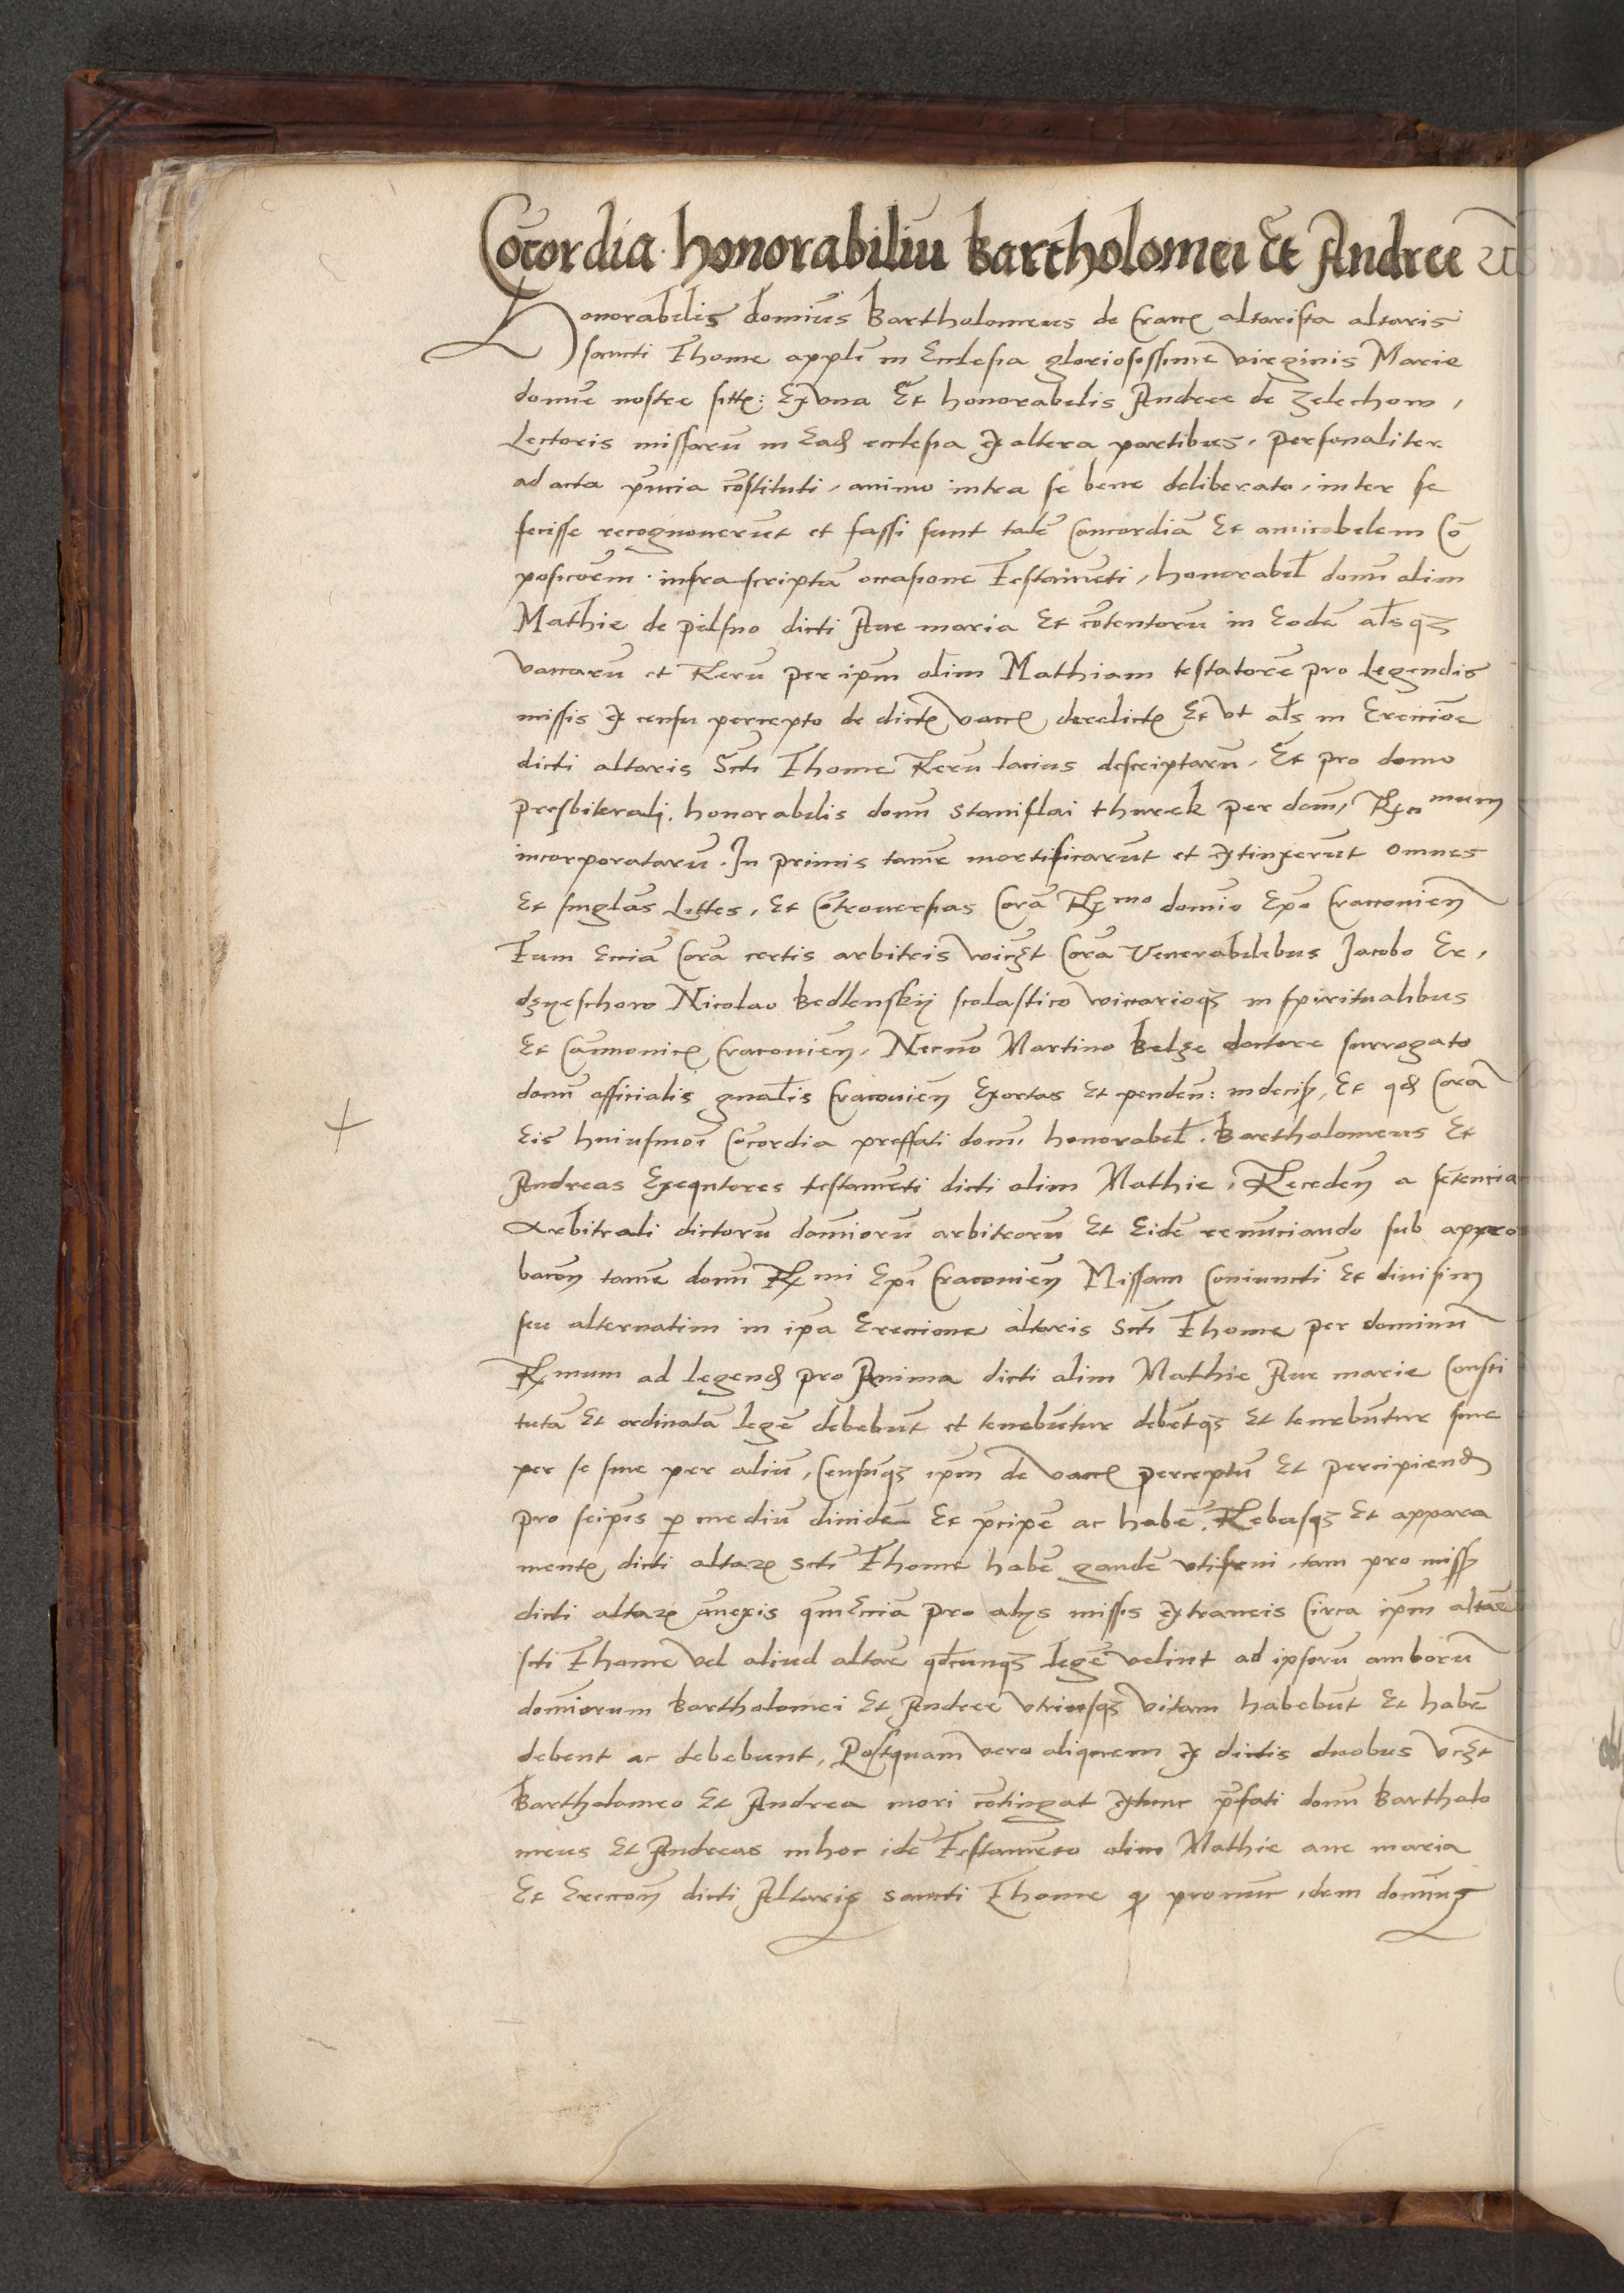 Cōcordia honorabiliū Bartholomei Et Andree
Honorabilis domīus Bartholomeus de Cracꝫ altarista altaris
sancti Thome appli in Ecclesia gloriosissime virginis Marie
domīe nostre sitꝭ: Ex vna Et honorabilis Andree de Zelechow,
Lectoris missarū in Eadꝭ ecclesia Ex altera partibus, personaliter
ad acta p̄ncia cōstituti, animo intra se bene deliberato, inter se
fecisse recognouerūt et fassi sunt talē Concordiā Et amicabilem Cō
posicōem infrascriptā occasione Testamēti, honorabil domī olim
Mathie de pilsno dicti Aue maria Et cōtentorū in Eodē alsqꝫ
vaccarū et Rerū per ipm̄ olim Mathiam testatorē pro Legendis
missis Ex censu percepto de dictꝭ vaccꝭ derelictꝭ Et vt als in Ereccioē
dicti altaris Scti Thome Rerū lacius descriptarū, Et pro domo
presbiterali, honorabilis domī Stanislai thurek per dom̄, Rx̄mum
incorporatarū. In primis tamē mortificarūt et extinxerūt omnes
Et singlās Littes, Et Cōtrouersias Corā Rx̄mo domīo Epō Cracouien̄
Tum Eciā Corā certis arbitris vicꝫt Corā Venerabilibus Jacobo Er,
dzyeschow Nicolao Bedlenskij scolastico vicarioqꝫ in spiritualibus
Et Canonicꝭ Cracouien̄, Necnō Martino Belze doctore surrogato
domī officialis gnālis Cracouien̄ Exortas Et penden̄: indecisꝭ, Et qdꝭ Corā
Eis huiusmoi Cōcordia preffati domī, honorabil. Bartholomeus Et
Andreas Exequtores testamēti dicti olim Mathie, Receden̄ a sētencia
Arbitrali dictorū domīorū arbitrorū Et Eidē renūciando sub appro
bacōn̄ tamē domī Rx̄mi Epī Cracouien̄ Missam Coniuncti Et diuisim
seu alternatim in ipa Ereccione altaris Scti Thome per dominū
Rx̄mum ad legendꝭ pro Anima dicti olim Mathie Aue marie Consti
tutā Et ordinatā legē debebūt et tenebūtur debētqꝫ Et tenebūtur siue
per se siue per aliū, Censūqꝫ ipm̄ de vaccꝭ perceptū Et percipiendꝭ
pro seipīs p mediū diuidē Et p̄cipē ac habē. Rebusqꝫ Et appara
mentꝭ dicti altarꝭ scti Thome habē gaudē vtifrui, tam pro missꝭ
dicti altarꝭ ānexis qm̄ Eciā pro alys missis extraneis Circa ipm̄ altarē
scti Thome vel aliud altarē qdcunqꝫ legē velint ad ipsorū amborū
domīorum Bartholomei Et Andree vtriusqꝫ vitam habebūt Et habē
debent ac debebunt, Postquam vero aliquem Ex dictis duobus vcꝫt
Bartholomeo Et Andrea mori cōtingat Extunc p̄fati domī Bartholo
meus Et Andreas inhoc idē Testamēto olim Mathie aue maria
Et Ereccōn̄ dicti Altaris sancti Thome q pronūc idem domīus